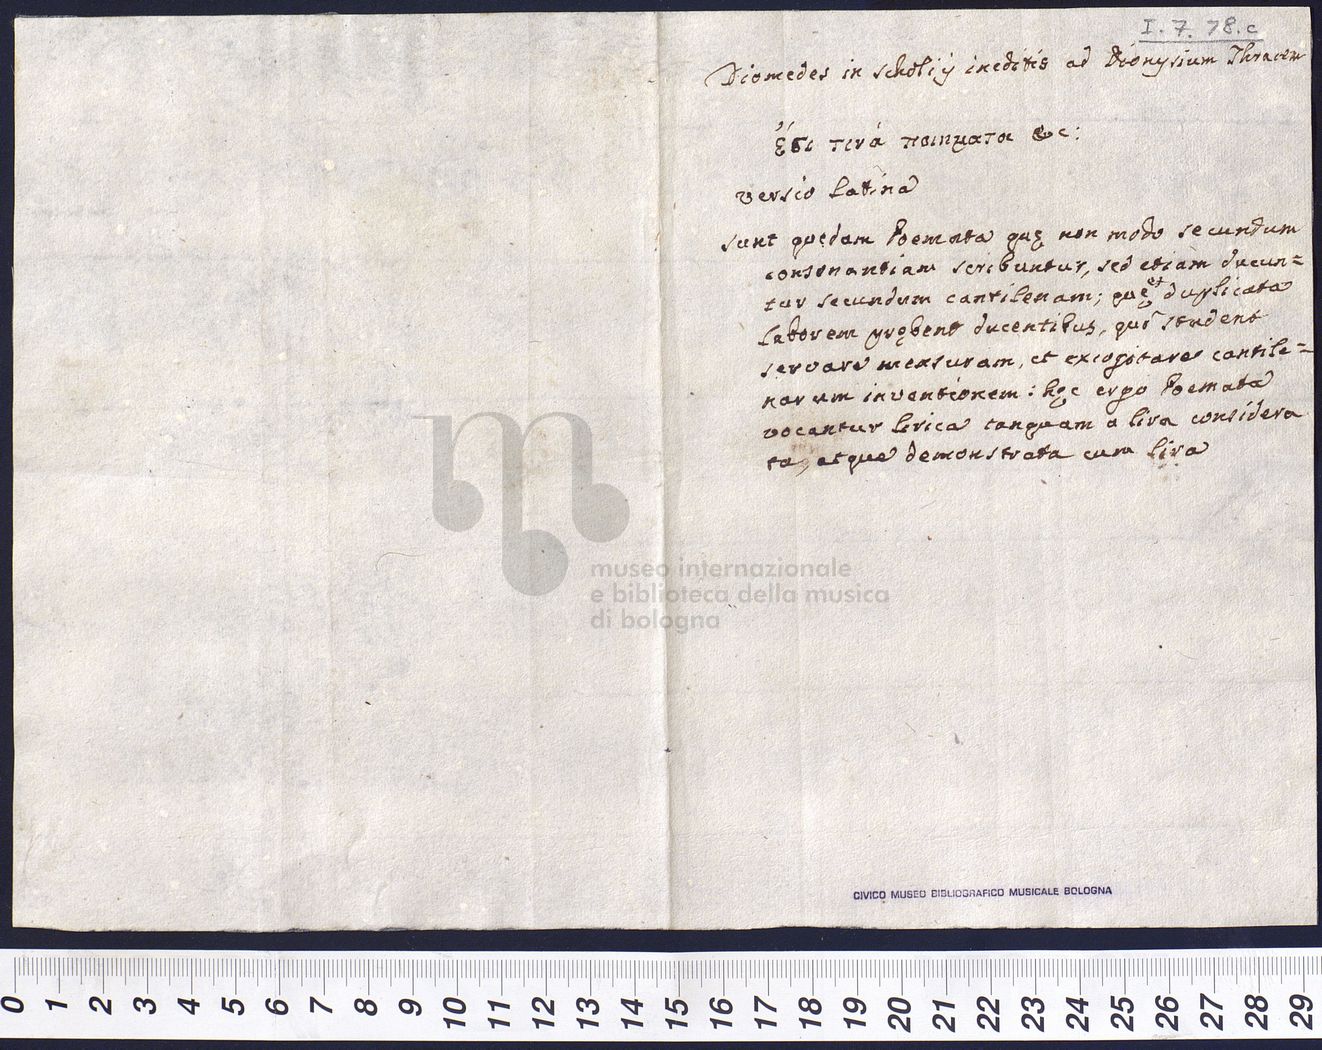 I. 7. 78. c
Diomedes in scholijs ineditis ad Dionysium Thracem
ἔϛι τινά ποιηματα &c:
versio Latina
sunt quędam Poemata quę non modo secundum
consonantiam scribuntur, sed etiam ducun=
tur secundum cantilenam; quę et duplicata
laborem prębent ducentibus, qui student
servare mensuram, et excogitare cantile=
narum inventionem: hęc ergo Poemata
vocantur lirica tanquam a lira considera
ta, atque demonstrata cum lira
museo internazionale
e biblioteca della musica
di bologna
CIVICO MUSEO BIBLIOGRAFICO MUSICALE BOLOGNA
0 1 2 3 4 5 6 7 8 9 10 11 12 13 14 15 16 17 18 19 20 21 22 23 24 25 26 27 28 29